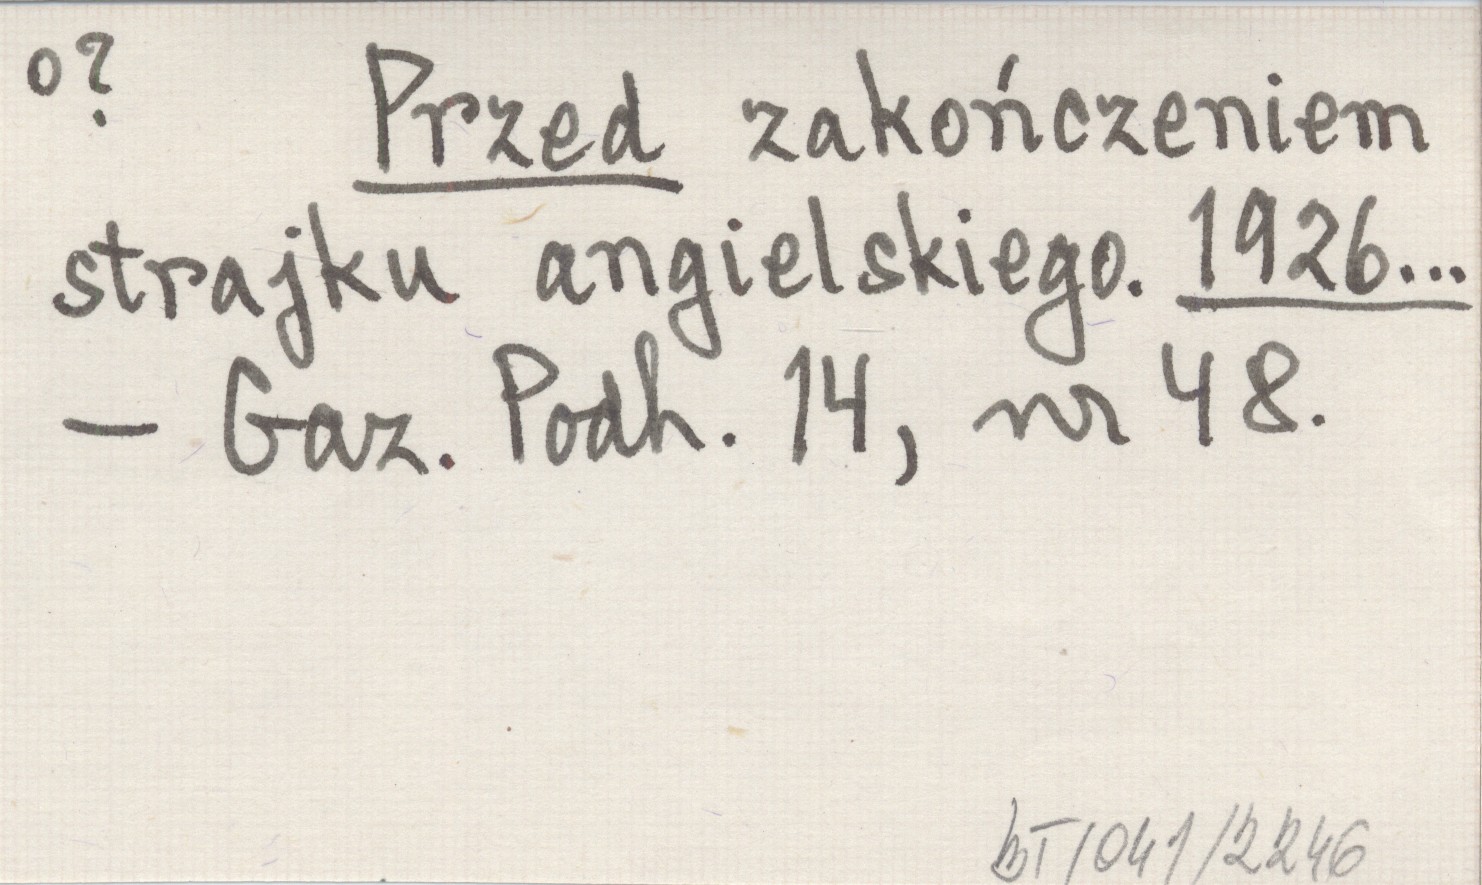 o? Przed zakończeniem
strajku angielskiego. 1926...
— Gaz. Podh. 14, nr 48.
bT/041/2246